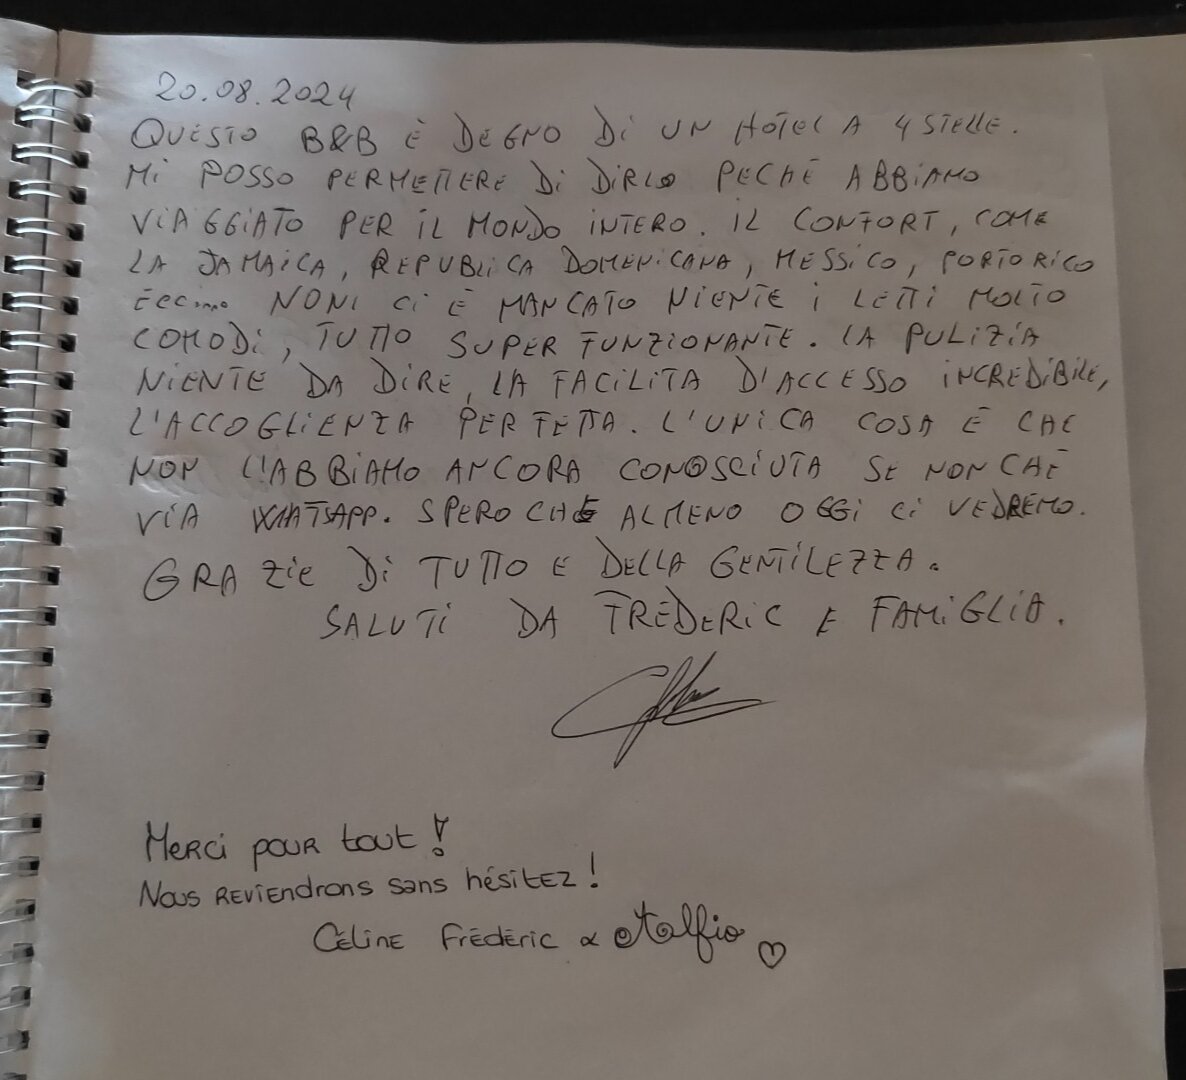 20.08.2024
QUESTO B&B È DEGNO DI UN HOTEL A 4 STELLE.
MI POSSO PERMETTERE DI DIRLO PECHÉ ABBIAMO
VIAGGIATO PER IL MONDO INTERO. IL CONFORT, COME
LA JAMAICA, REPUBLICA DOMENICANA, MESSICO, PORTORICO
ECC... NONI CI È MANCATO NIENTE I LETTI MOLTO
COMODI, TUTTO SUPER FUNZIONANTE. LA PULIZIA
NIENTE DA DIRE, LA FACILITA D'ACCESSO INCREDIBILE,
L'ACCOGLIENZA PERFETTA. L'UNICA COSA È CHE
NON L'ABBIAMO ANCORA CONOSCIUTA SE NON CHÉ
VIA WHATSAPP. SPERO CHE ALMENO OGGI CI VEDREMO.
GRAZIE DI TUTTO E DELLA GENTILEZZA.
SALUTI DA FRÉDERIC E FAMIGLIA.
Merci pour tout !
Nous reviendrons sans hésitez !
Céline Frédéric &